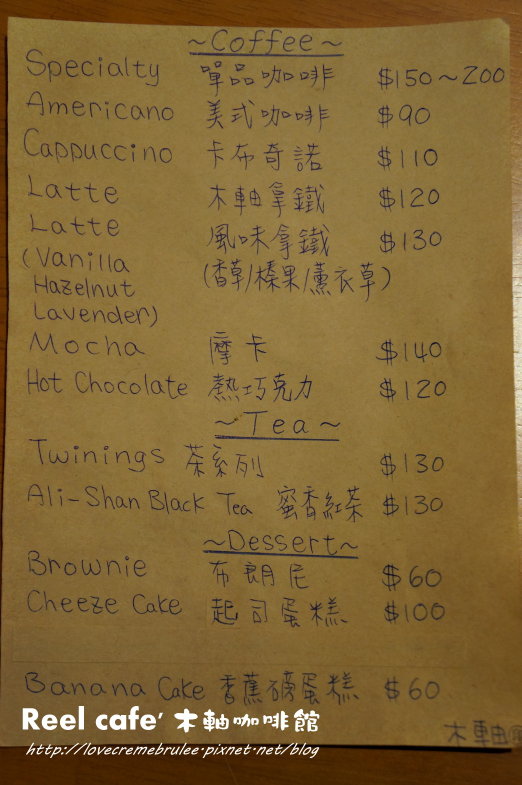 ~Coffee~
Specialty 單品咖啡 $150~200
Americano 美式咖啡 $90
Cappuccino 卡布奇諾 $110
Latte 木軸拿鐵 $120
Latte 風味拿鐵 $130
(Vanilla (香草/榛果/薰衣草)
Hazelnut
Lavender)
Mocha 摩卡 $140
Hot Chocolate 熱巧克力 $120
~Tea~
Twinings 茶系列 $130
Ali-Shan Black Tea 蜜香紅茶 $130
~Dessert~
Brownie 布朗尼 $60
Cheeze Cake 起司蛋糕 $100
Banana Cake 香蕉磅蛋糕 $60
Reel cafe' 木軸咖啡館
http://lovecremebrulee.pixnet.net/blog
木軸